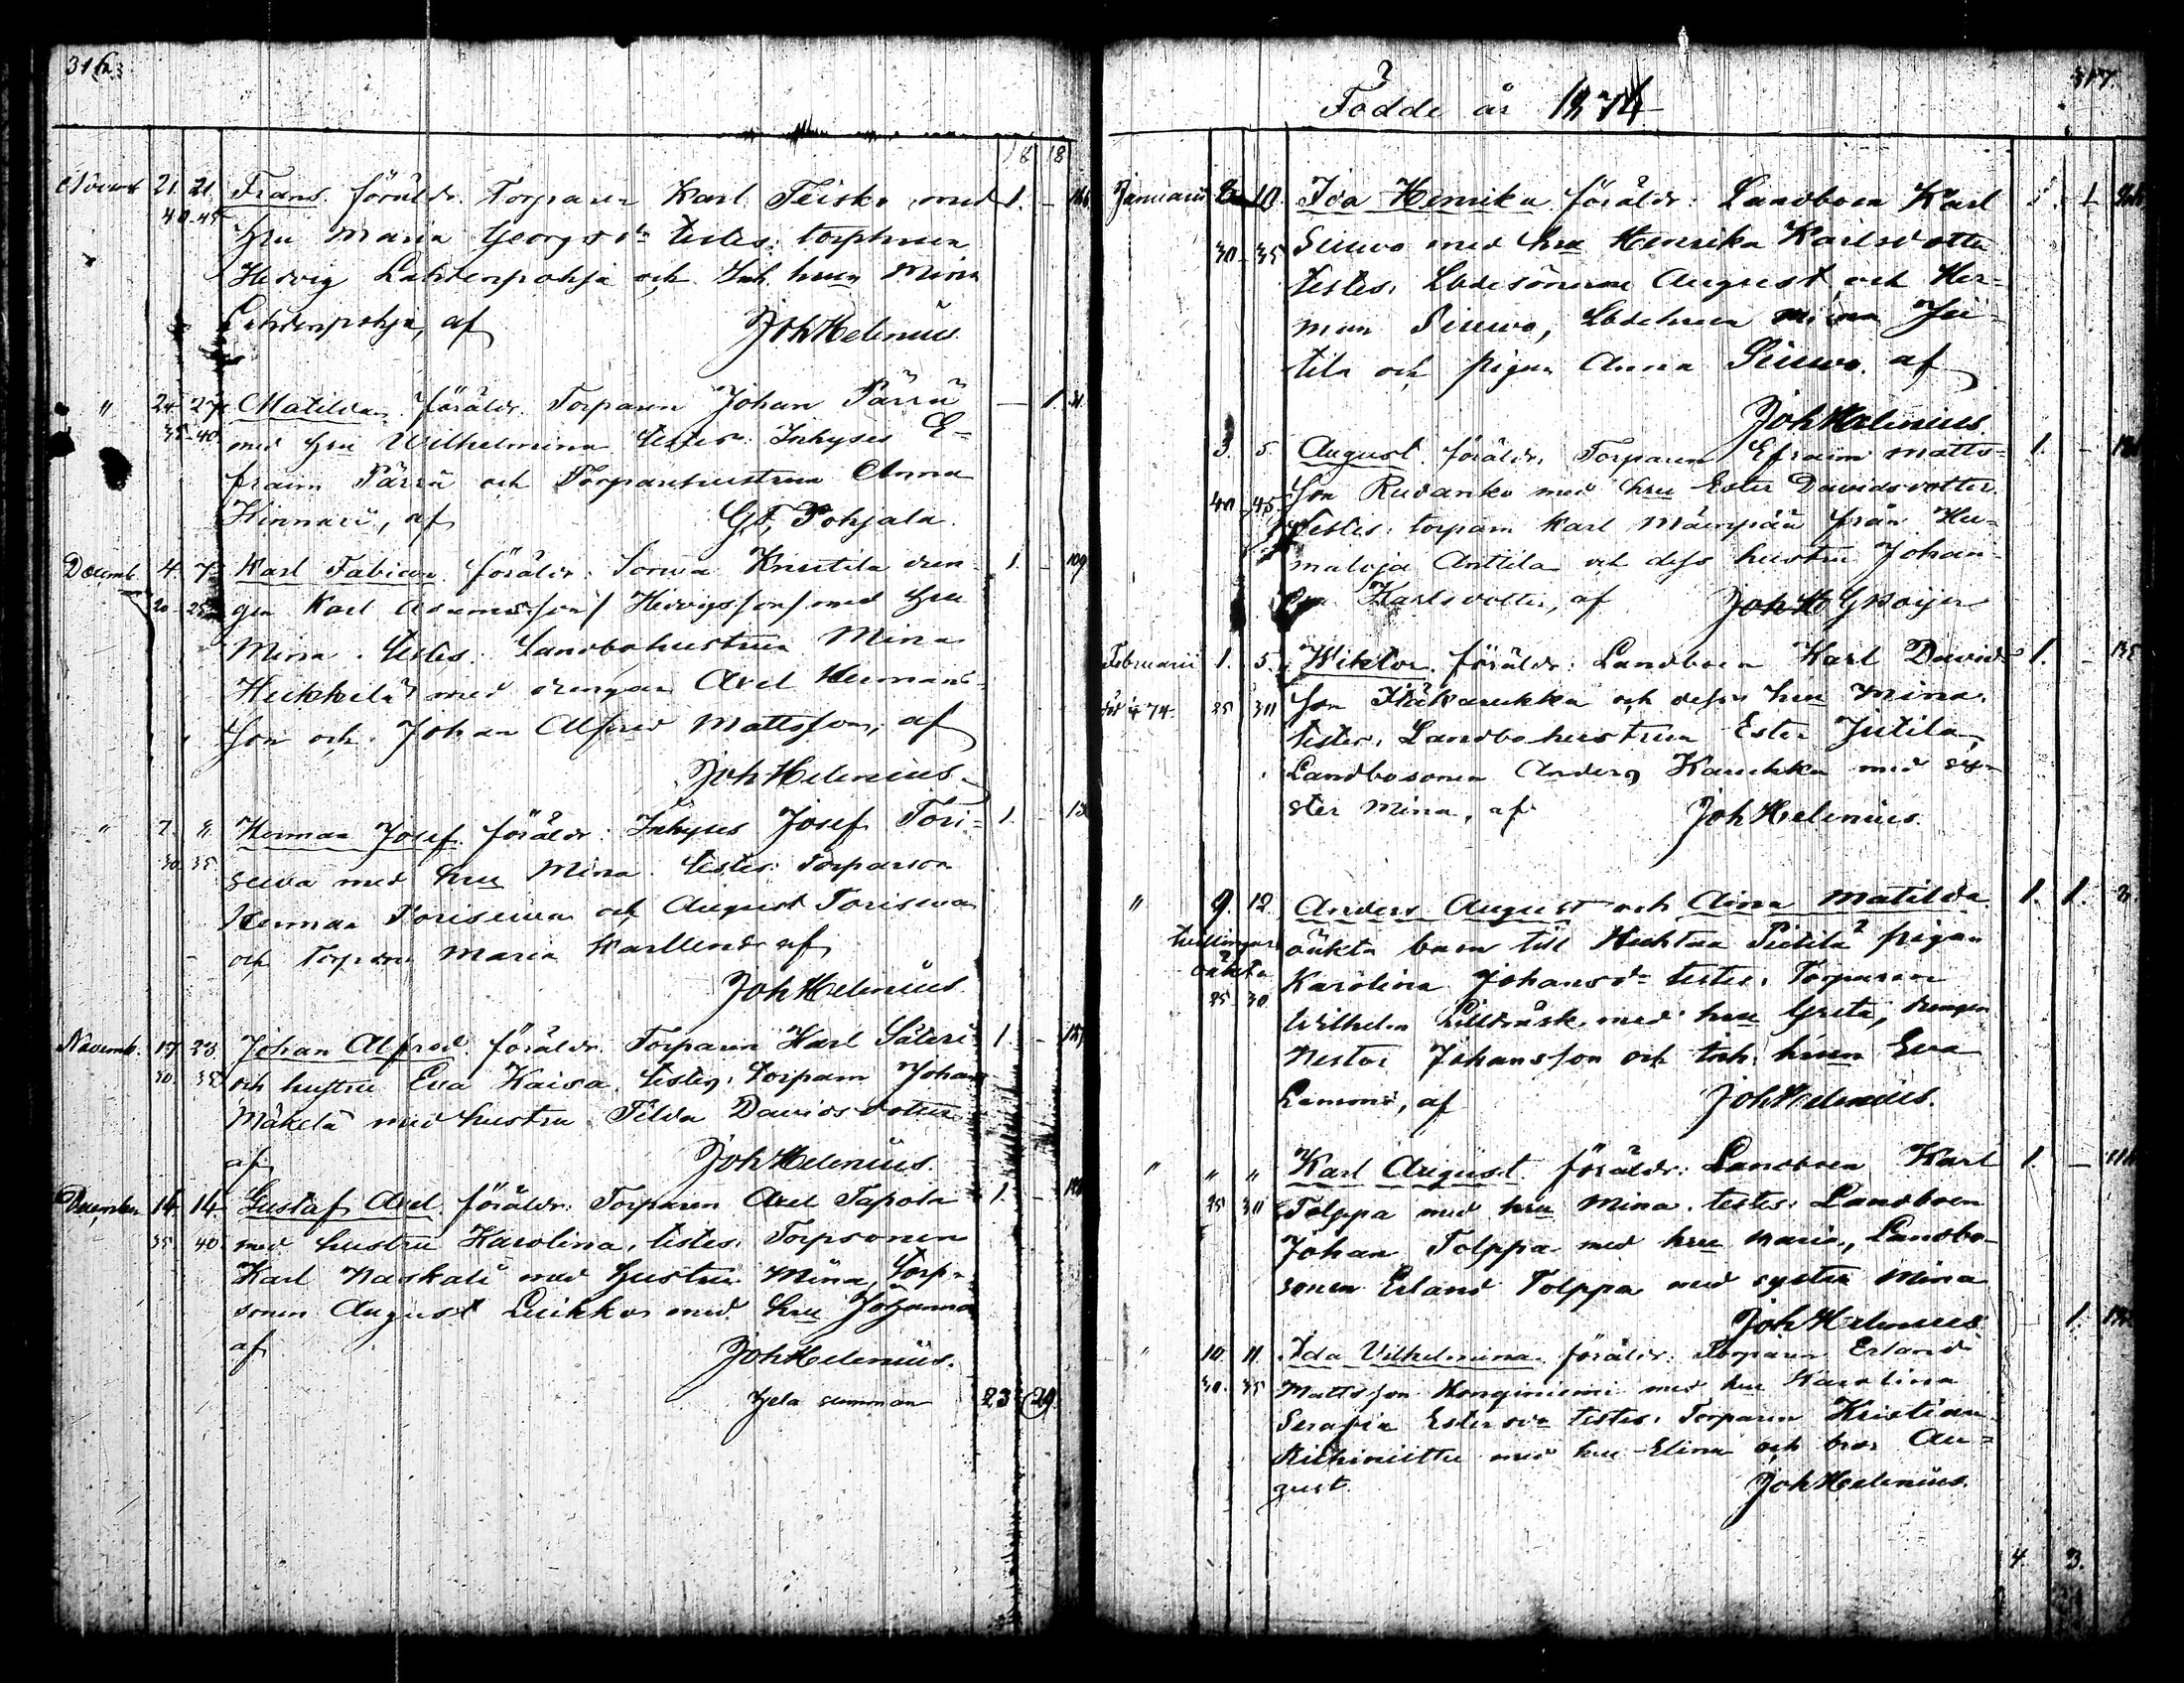 316
18 18
Novemb 21. 21. Frans. föräldr. Torparen Karl Teisko med 1. –
40-45 hru Maria Georgsdr testes: torphrun
Hedvig Lahdenpohja och Inh. hrun Mina
Lahdenpohja, af Joh Helenius.
" 24 27 Matilda. föräldr. Torparen Johan Pärrü — 1. 31.
35-40 med hru Wilhelmina testes: Inhyses E-
fraim Pärrü och Torparehustrun Anna
Kinnari, af Gt, Pohjala.
Decemb 4. 7. Karl Fabian. föräldr: Sorwa Knutila dren- 1. – 109
20-25 gen Karl Adamsson / Hedvigsson / med hru
Mina. testes. Landbohustrun Mina
Heikkilä med drengen Axel Hermans-
son och Johan Alfred Mattsson, af
Joh Helenius.
" 7. " Herman Josef. föräldr: Inhyses Josef Tori- 1. 13
30 35 seva med hru Mina. testes: Torparson
Herman Toriseva och August Toriseva
och Maria Karllend. af
Joh Helenius.
Novemb. 17 23 Johan Alfred. föräldr. Torparen Karl Säteri 1. –
30. 35 och hustru Eva Kaisa. testes, torparn Johan
Mäkelä med hustru Tilda Davidsdotter
af Joh Helenius.
December 14. 14. Gustaf Axel. föräldr: Torparen Axel Tapola 1. –
35 40 med hustru Karolina, testes: Torpsonen
Karl Naskali med hustru Mina, torp-
sonen August Luikko med hru Johanna
af Joh Helenius.
hela summan 23 29.
317.
Födde år 1874
Januarii 8 10. Ida Henrika. föräldr: Landboen Karl 1
30-35 Siuwo med hru Henrika Karlsdotter
testes. Lbdesönerne August och Her-
man Siuwo, Lbdehrun Mina Jü-
tila och pigan Anna Siuwo. af
Joh Helenius.
3. 5. August. föräldr. Torparen Efraim Matts- 1. –
40-45 son Rudanko med hru Ester Davidsdotter.
Testes: torparn Karl Mäenpää från Hu-
maloja Anttila och dess hustru Johan-
Karlsdotter, af Joh H GBoijer
Februarii 1. 5. Wiktor. föräldr: Landboen Karl Davids- 1. – 135
74. 25 30 son Karukka och dess hru Mina.
testes. Landbohustrun Ester Jutila,
Landbosonen Anders Karukka med sy-
ster Mina, af Joh Helenius.
" 9. 12 Anders August och Aina Matilda 1. 1. 3.
tvillingar oäkta barn till Huhtaa Pietilä pigan
oäkta Karolina Johansdr testes. Torparen
25-30 Wilhelm Lillträsk. med hru Greta, drengen
Nestor Johansson och Inh. hrun Eva
Lamoni, af Joh Helenius.
" " " Karl August. föräldr: Landboen Karl 1. –
25 30 Tolppa med hru Mina. testes. Landboen
Johan Tolppa med hru Maria, Landbo-
sonen Erland Tolppa med syster Mina
Joh Helenius.
" 10. 11. Ida Vilhelmina. föräldr: Torparen Erland 1.
30. 35 Mattsson Honginiemi med hru Karolina
Serafia Estersdr testes. Torparen Kristian
Riihiniittu med hru Elina och bror Au-
gust. Joh Helenius.
4. 3.